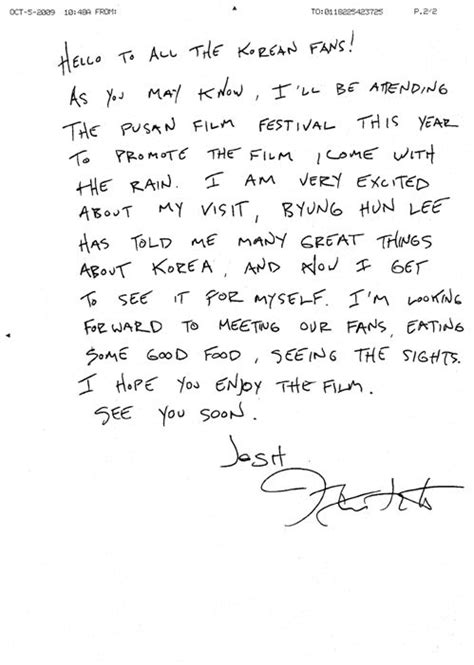 OCT-5-2009 10:48A FROM: TO:0118225423725 P.2/2
HELLO TO ALL THE KOREAN FANS!
AS YOU MAY KNOW, I'LL BE ATTENDING
THE PUSAN FILM FESTIVAL THIS YEAR
TO PROMOTE THE FILM, I COME WITH
THE RAIN. I AM VERY EXCITED
ABOUT MY VISIT, BYUNG HUN LEE
HAS TOLD ME MANY GREAT THINGS
ABOUT KOREA, AND NOW I GET
TO SEE IT FOR MYSELF. I'M LOOKING
FORWARD TO MEETING OUR FANS, EATING
SOME GOOD FOOD, SEEING THE SIGHTS.
I HOPE YOU ENJOY THE FILM.
SEE YOU SOON.
JOSH